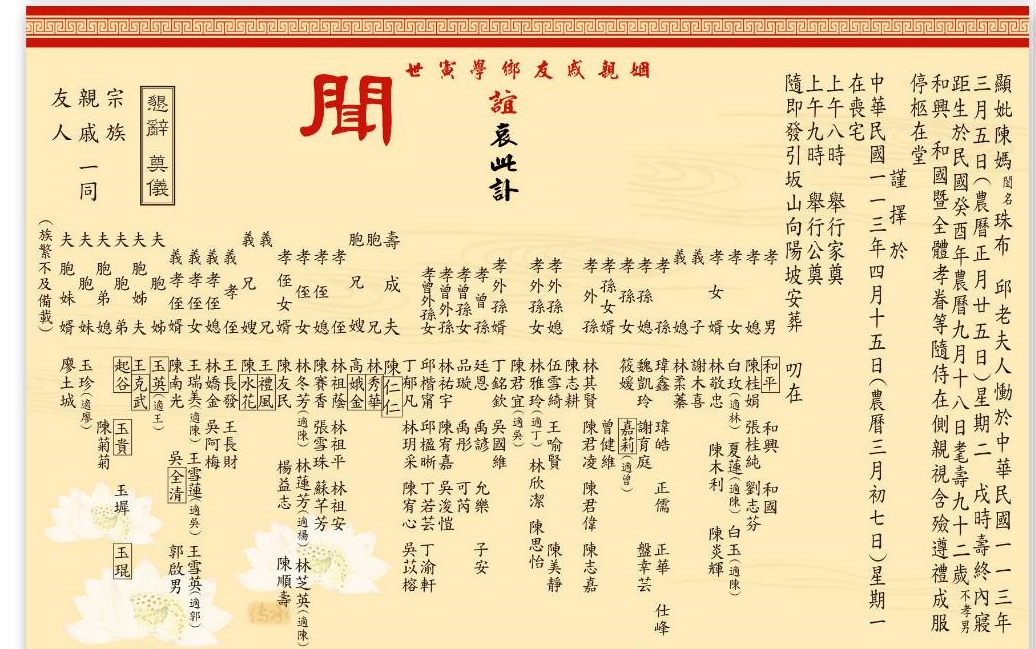 顯妣陳媽閨名珠布　邱老夫人慟於中華民國一一三年
三月五日（農曆正月廿五日）星期二　戌時壽終內寢
距生於民國癸酉年農曆九月十八日耄壽九十二歲不孝男
和興　和國暨全體孝眷等隨侍在側親視含殮遵禮成服
停柩在堂
謹擇於
中華民國一一三年四月十五日（農曆三月初七日）星期一
在喪宅
上午八時　舉行家奠
上午九時　舉行公奠
隨即發引坂山向陽坡安葬　叨在
姻親戚友鄉學寅世
誼
哀此訃
聞
孝男　和平　和興　和國
孝媳　陳桂娟　張桂純　劉志芬
孝女　白玫（適林）　夏蓮（適陳）　白玉（適陳）
孝女婿　林敬忠　陳木利　陳炎輝
義子　謝木喜
義媳　林柔蓁
孝孫　魏鑫　瑋皓　正儒　正華　仕峰
孝孫媳　魏凱玲　謝育庭　盤幸芸
孝孫女　筱媛　嘉莉（適曾）
孝孫女婿　曾健維
孝外孫　林其賢　陳君凌　陳君偉　陳志嘉
陳志耕
孝外孫媳　伍雪綺　王喻賢　陳美靜
孝外孫女　林雅玲（適丁）　林欣潔　陳思怡
陳君宜（適吳）
孝外孫婿　丁銘欽　吳國維
孝曾孫　廷恩　禹諺　允樂　子安
孝曾孫女　品璇　禹彤　可芮
孝曾外孫　林祐宇　陳宥嘉　吳浚愷
孝曾外孫女　邱楷甯　邱楹晰　丁若芸　丁渝軒
丁郁凡　林玥采　陳宥心　吳苡榕
壽成夫　陳仁仁
胞兄　林秀華
胞兄嫂　高娥金
孝侄　林祖蔭　林祖平　林祖安
孝侄媳　陳賽香　張雪珠　蘇芊芳
孝侄女　林冬芳（適陳）　林蓮芳（適楊）　林芝英（適陳）
孝侄女婿　陳友民　楊益志　陳順壽
義兄　王禮風
義兄嫂　陳水花
義孝侄　王長發　王長財
義孝侄媳　林嬌金　吳阿梅
義孝侄女　王瑞美（適陳）　王雪蓮（適吳）　王雪英（適郭）
義孝侄女婿　陳南光　吳全清　郭啟男
夫胞姊　玉英（適王）
夫胞姊夫　王克武
夫胞弟　起谷　玉貴　玉墀　玉琨
夫胞弟媳　陳菊菊
夫胞妹　玉珍（適廖）
夫胞妹婿　廖土城
（族繁不及備載）
懇辭　奠儀
宗族
親戚一同
友人